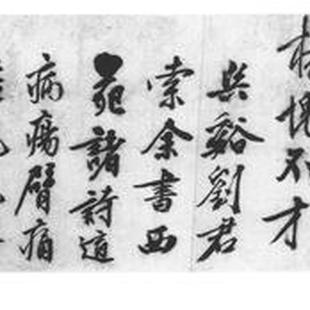 愧不才
吳谿劉君
索余書西
苑諸詩適
病瘍臂痛